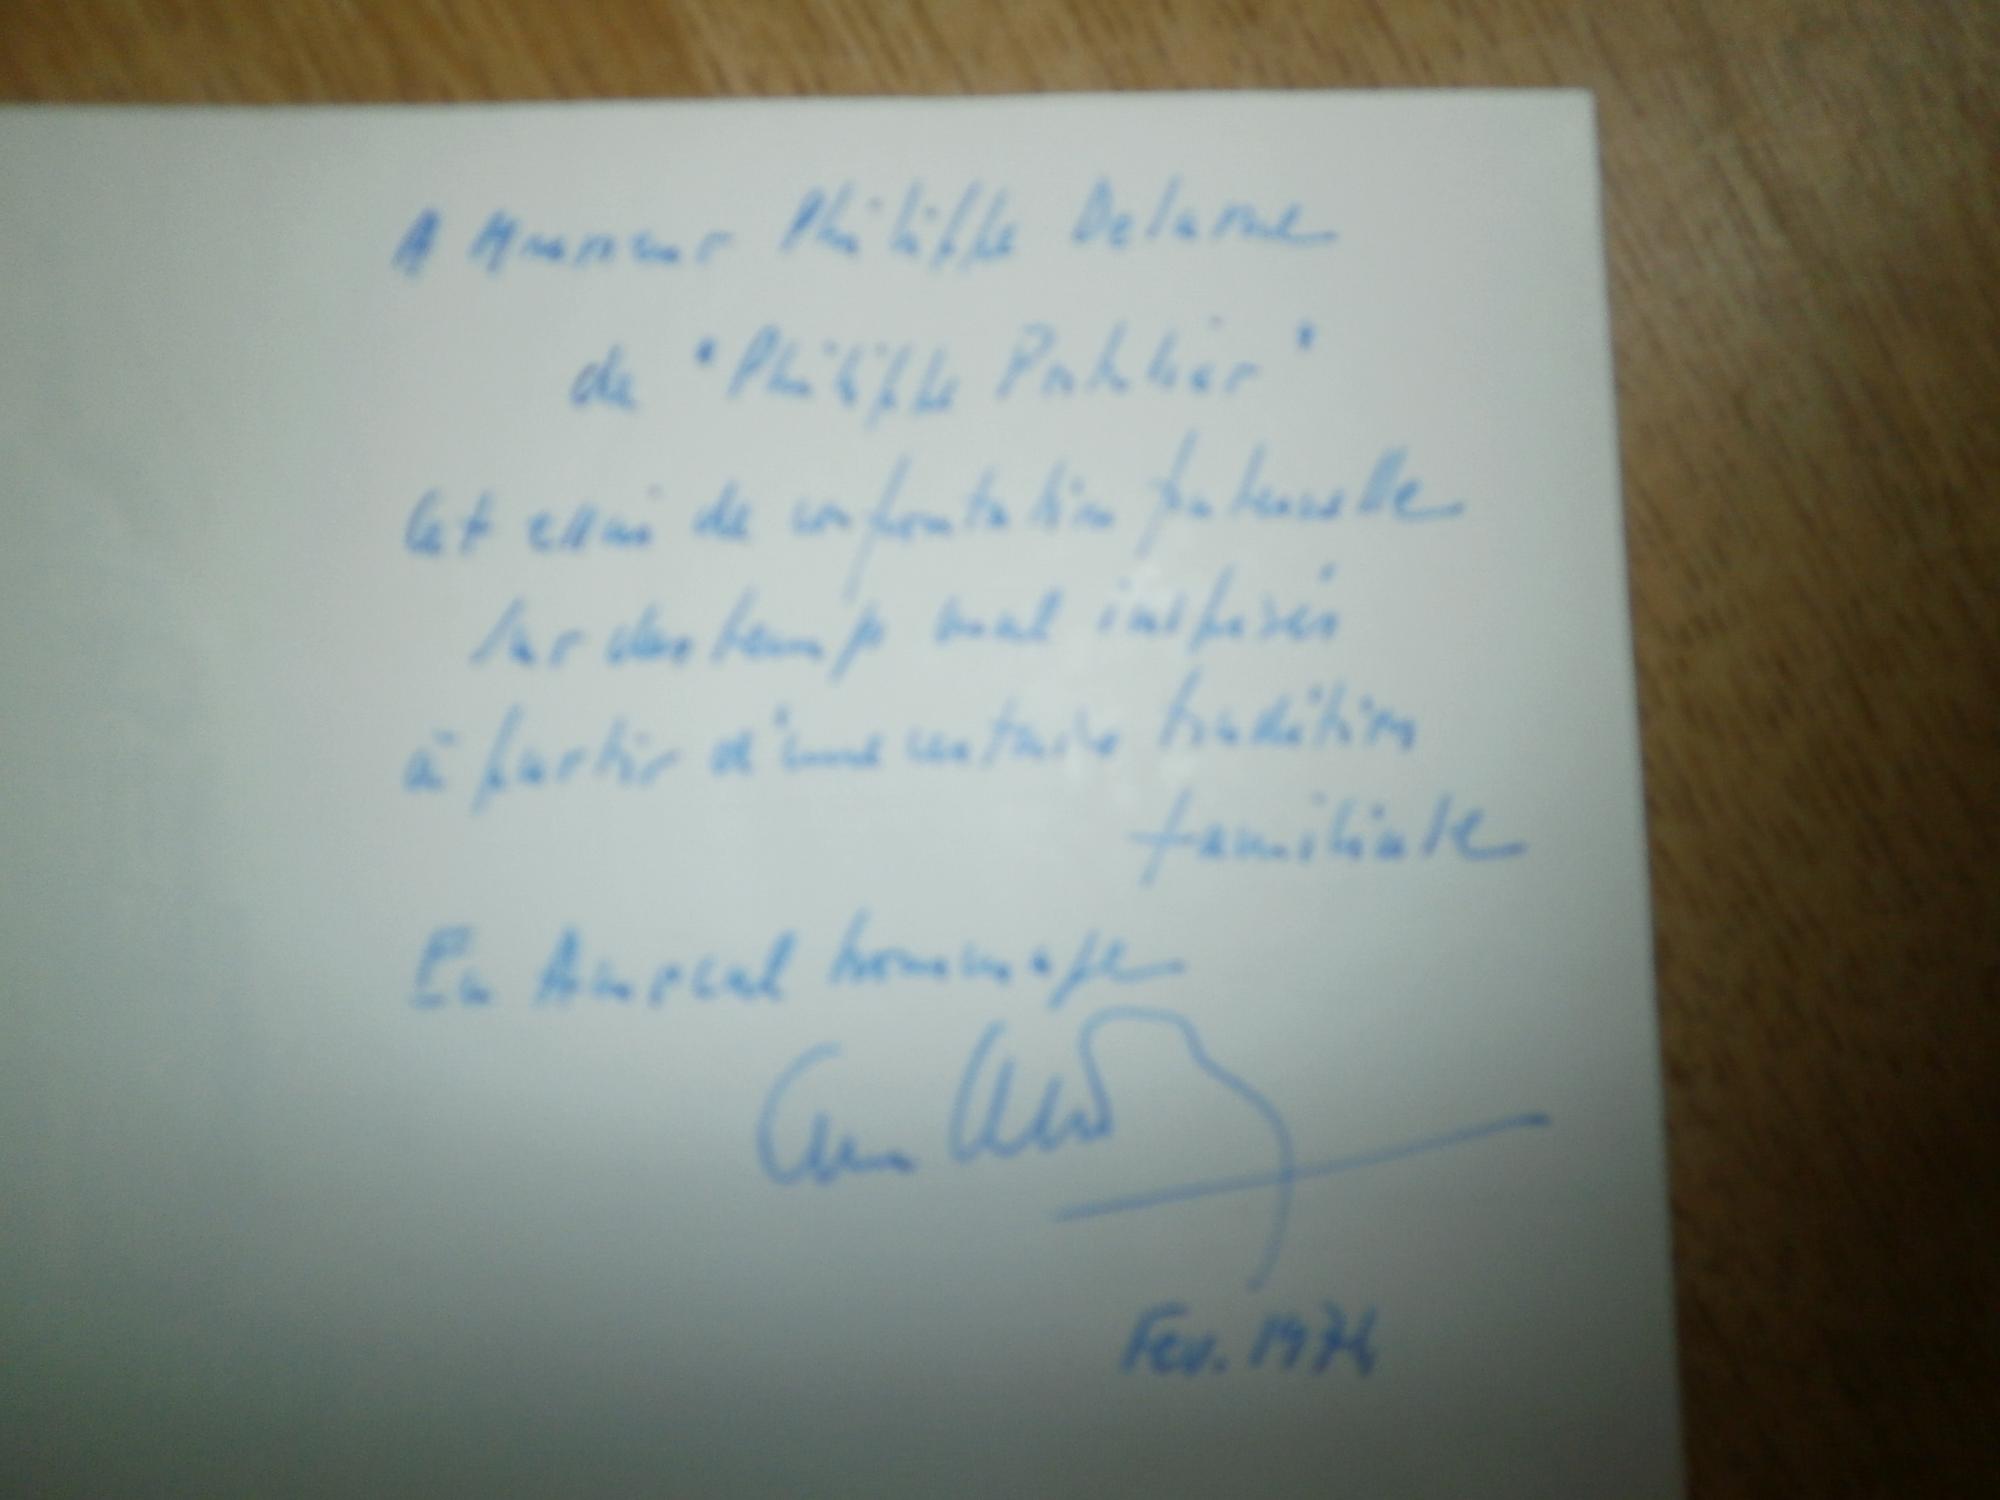 A Monsieur Philippe Delarue
de "Philippe "
Cet essai de confrontation
sur des temps mal inspirés
à partir d'une certaine tradition
familiale
En Amical hommage
Fev. 1974